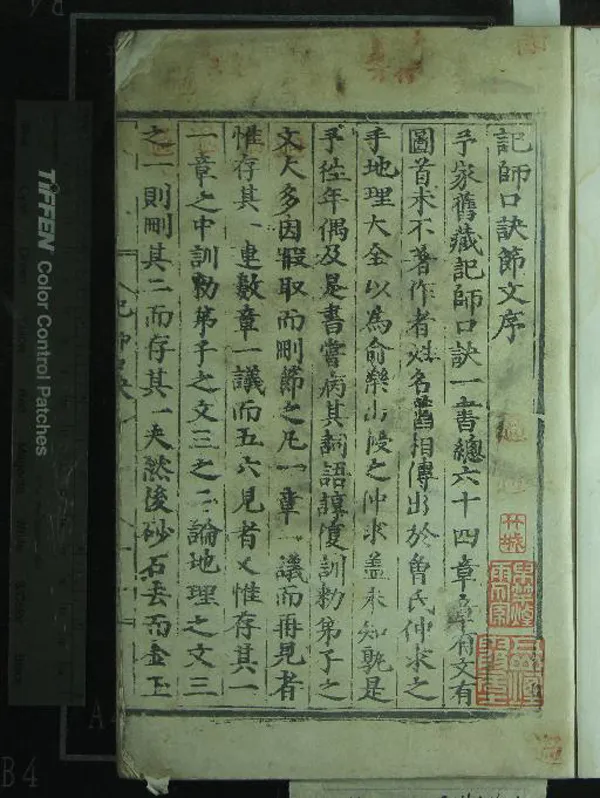 記師口訣節文序
予家舊藏記師口訣一書總六十四章章有文有
圖首末不著作者姓名舊相傳出於曾氏仲求之
手地理大全以為俞樂山授之仲求盖未知孰是
予徃年偶及是書嘗病其詞語諄復訓勑弟子之
文大多因暇取而刪節之凡一章一議而再見者
惟存其一連數章一議而五六見者又惟存其一
一章之中訓勑弟子之文三之二論地理之文三
之一則刪其二而存其一夫然後砂石去而金玉
記師口訣
TIFFEN Color Control Patches
竹城
B4